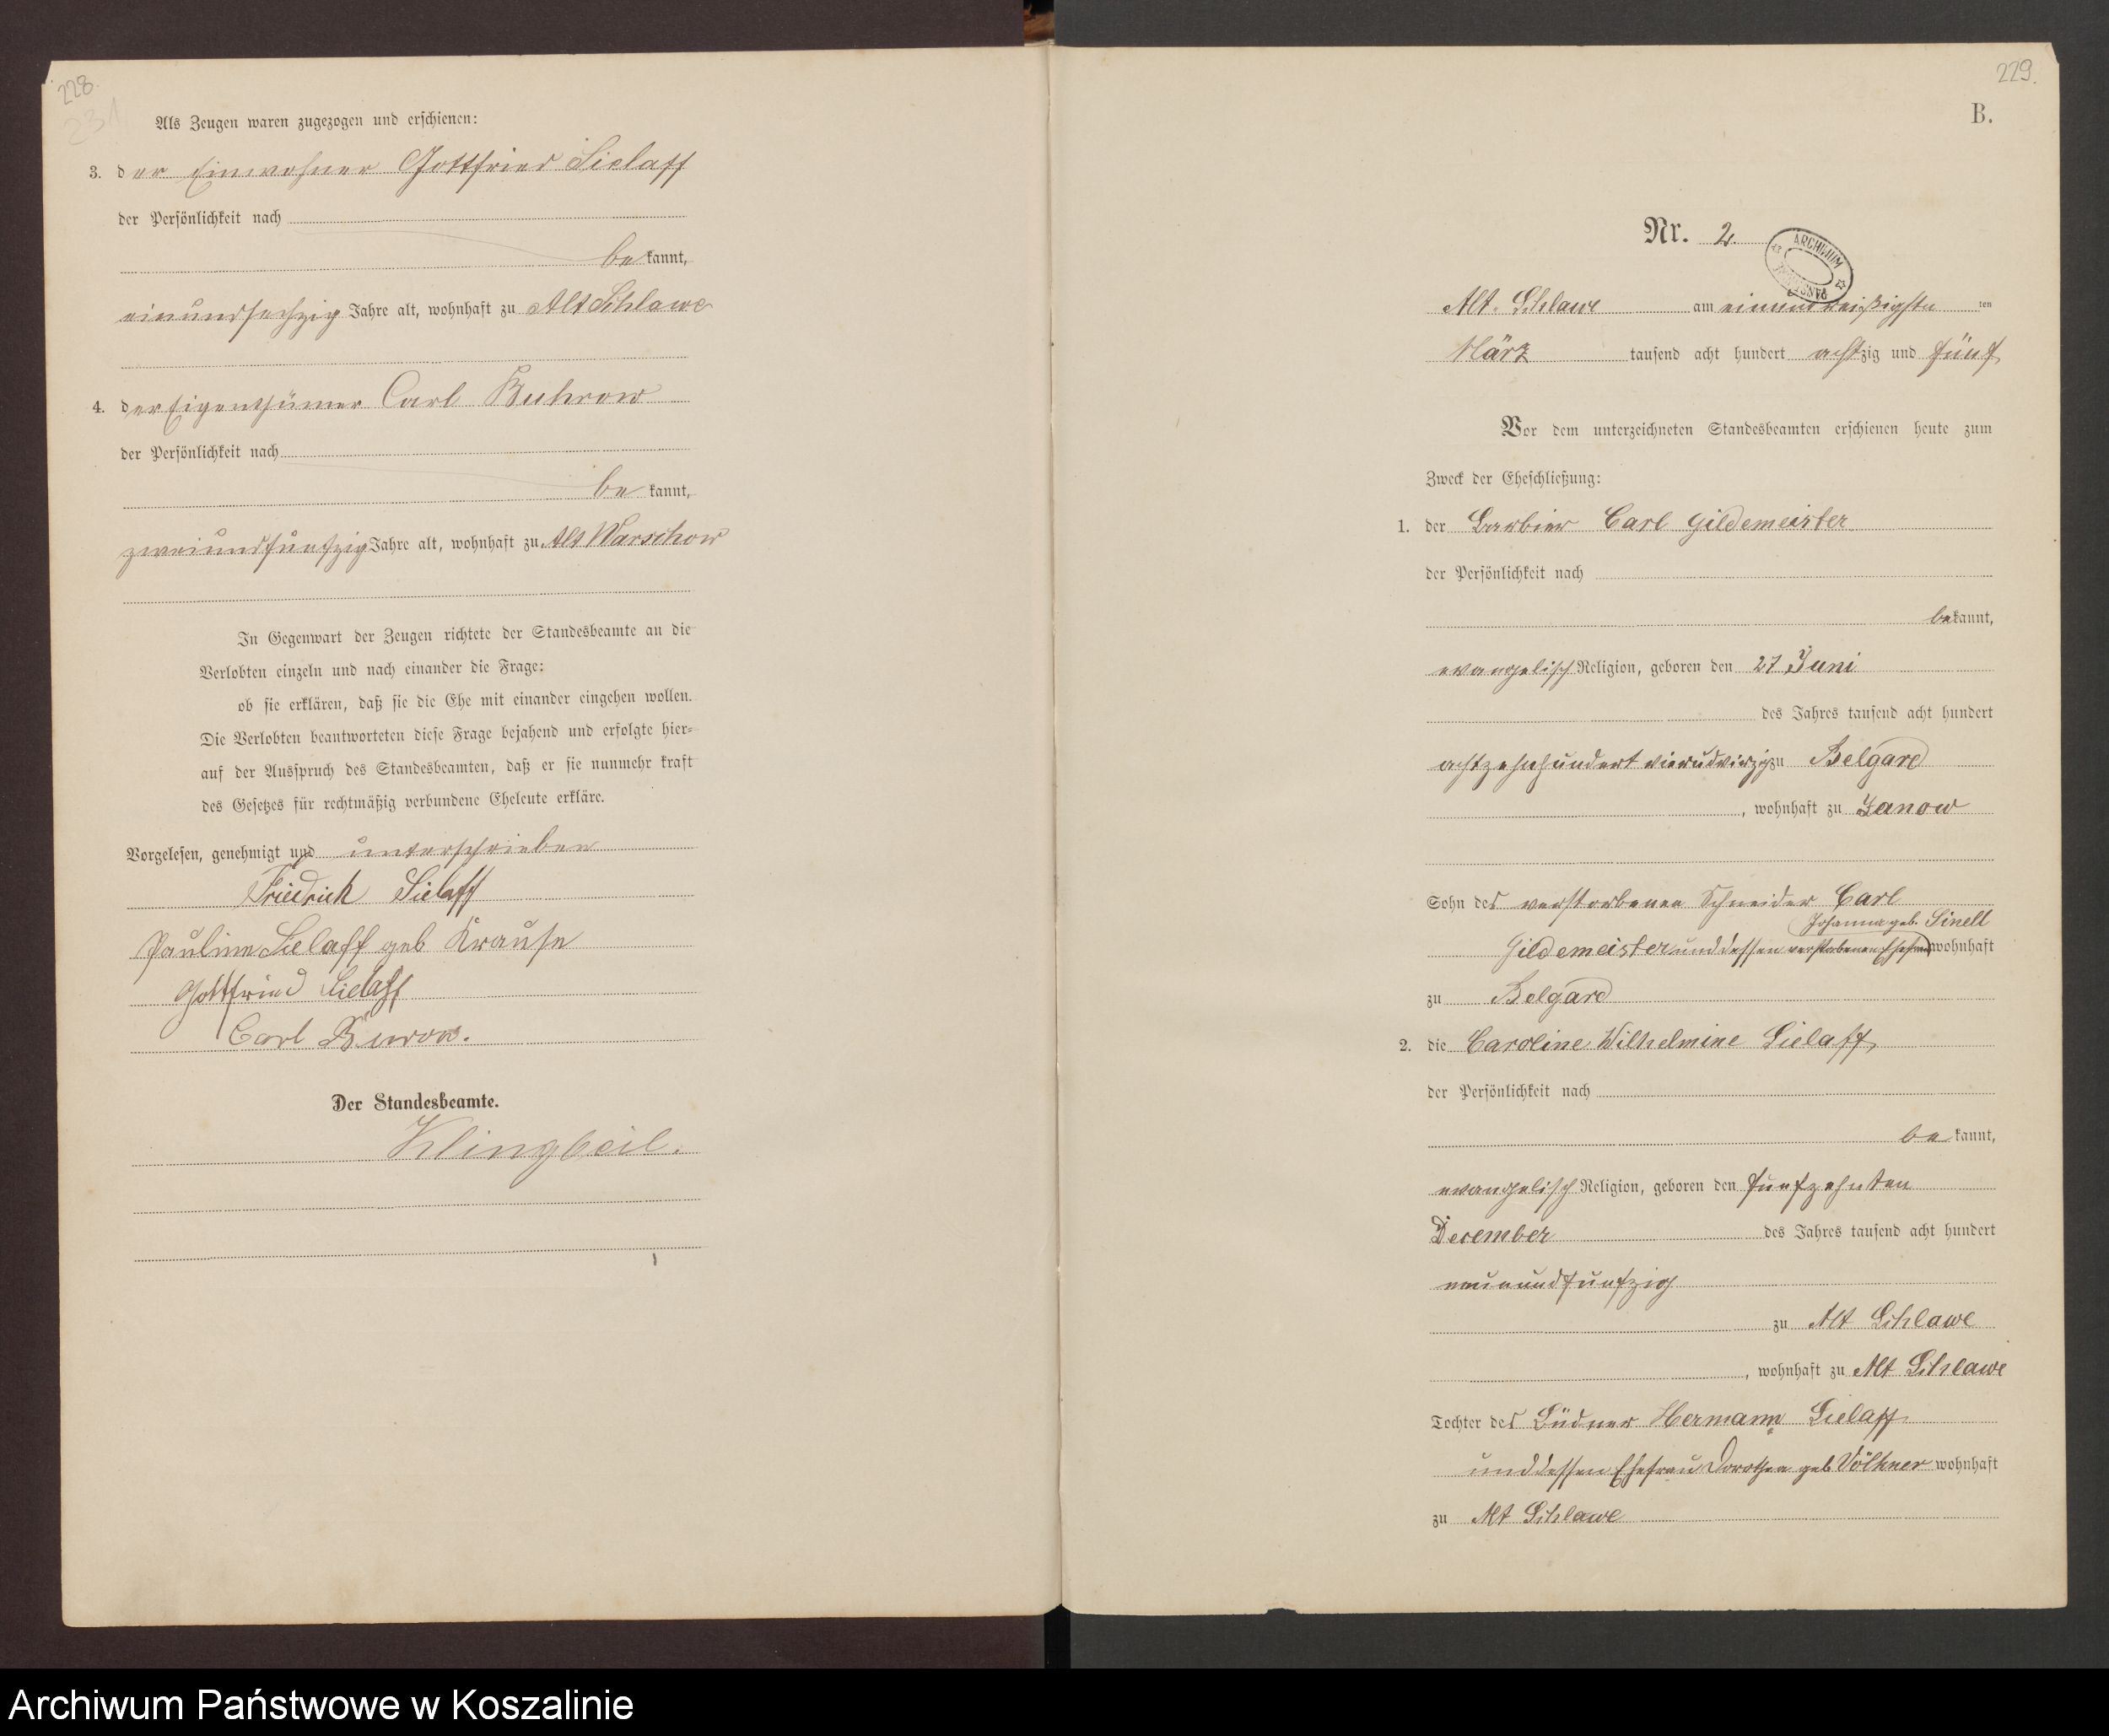 228.
231
Als Zeugen waren zugezogen und erschienen:
3. der Einwohner Gottfried Sielaff
der Persönlichkeit nach
bekannt,
einundsechzig Jahre alt, wohnhaft zu Alt Schlawe
4. der Eigenthümer Carl Buhrow
der Persönlichkeit nach
be kannt,
zweiundfünfzig Jahre alt, wohnhaft zu Alt Warschow
In Gegenwart der Zeugen richtete der Standesbeamte an die
Verlobten einzeln und nach einander die Frage:
ob sie erklären, daß sie die Ehe mit einander eingehen wollen.
Die Verlobten beantworteten diese Frage bejahend und erfolgte hier-
auf der Ausspruch des Standesbeamten, daß er sie nunmehr kraft
des Gesetzes für rechtmäßig verbundene Eheleute erkläre.
Vorgelesen, genehmigt und unterschrieben
Friedrich Sielaff
Pauline Sielaff geb Krause
Gottfried Sielaff
Carl Burow.
Der Standesbeamte.
Klingbeil.
229.
B.
Nr. 2.
ARCHIWUM
Alt. Schlawe am einunddreißigsten ten
März tausend acht hundert achtzig und fünf
Vor dem unterzeichneten Standesbeamten erschienen heute zum
Zweck der Eheschließung:
1. der Barbier Carl Gildemeister
der Persönlichkeit nach
bekannt,
evangelisch Religion, geboren den 27 Juni
des Jahres tausend acht hundert
achtzehnhundert vierundvierzig zu Belgard
, wohnhaft zu Zanow
Sohn des verstorbenen Schneider Carl
Johanna geb. Sinell
Gildemeister und dessen verstorbenen Ehefrau wohnhaft
zu Belgard
2. die Caroline Wilhelmine Sielaff,
der Persönlichkeit nach
be kannt,
evangelisch Religion, geboren den fünfzehnten
December des Jahres tausend acht hundert
neunundfünfzig
zu Alt Schlawe
, wohnhaft zu Alt Schlawe
Tochter des Büdner Hermann Sielaff
und dessen Ehefrau Dorothea geb Völkner wohnhaft
zu Alt Schlawe
Archiwum Państwowe w Koszalinie